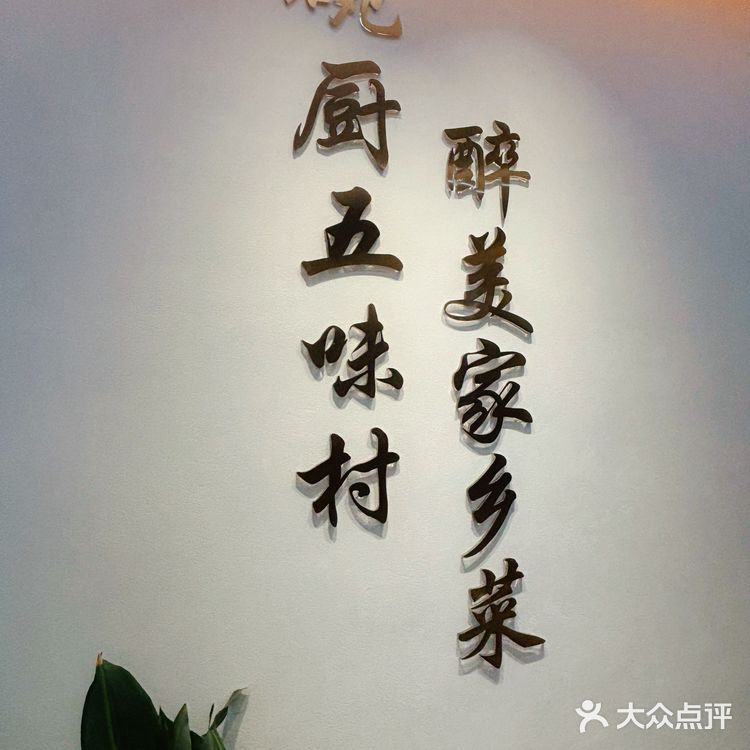 醉美家乡菜
厨五味村
大众点评